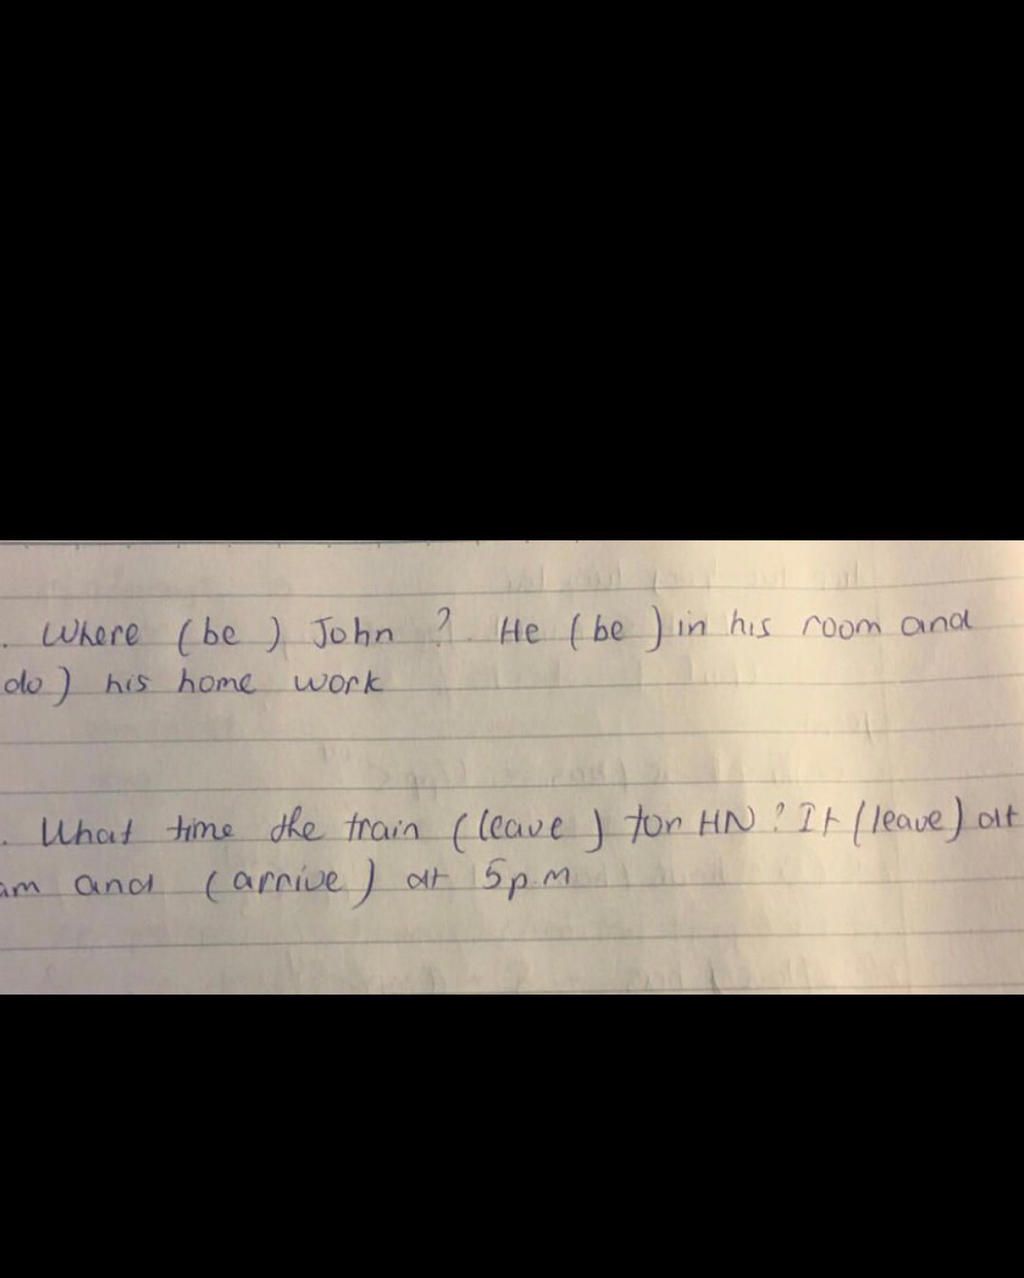 . Where (be ) John ? He (be ) in his room and
do ) his home work
. What time the train (leave ) for HN ? It (leave) at
am and (arrive ) at 5p.m